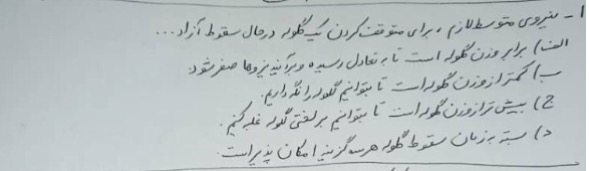 ۱- نیروی متوسط لازم، برای متوقف کردن یک گلوله درحال سقوط آزاد...
الف) برابر وزن گلوله است تا به تعادل رسیده و برآیند نیروها صفر شود.
ب) کمتر از وزن گلوله است تا بتوانیم گلوله را نگه داریم.
ج) بیش تر از وزن گلوله است تا بتوانیم بر لختی گلوله غلبه کنیم.
د) بسته به زمان سقوط گلوله هر سه گزینه امکان پذیر است.